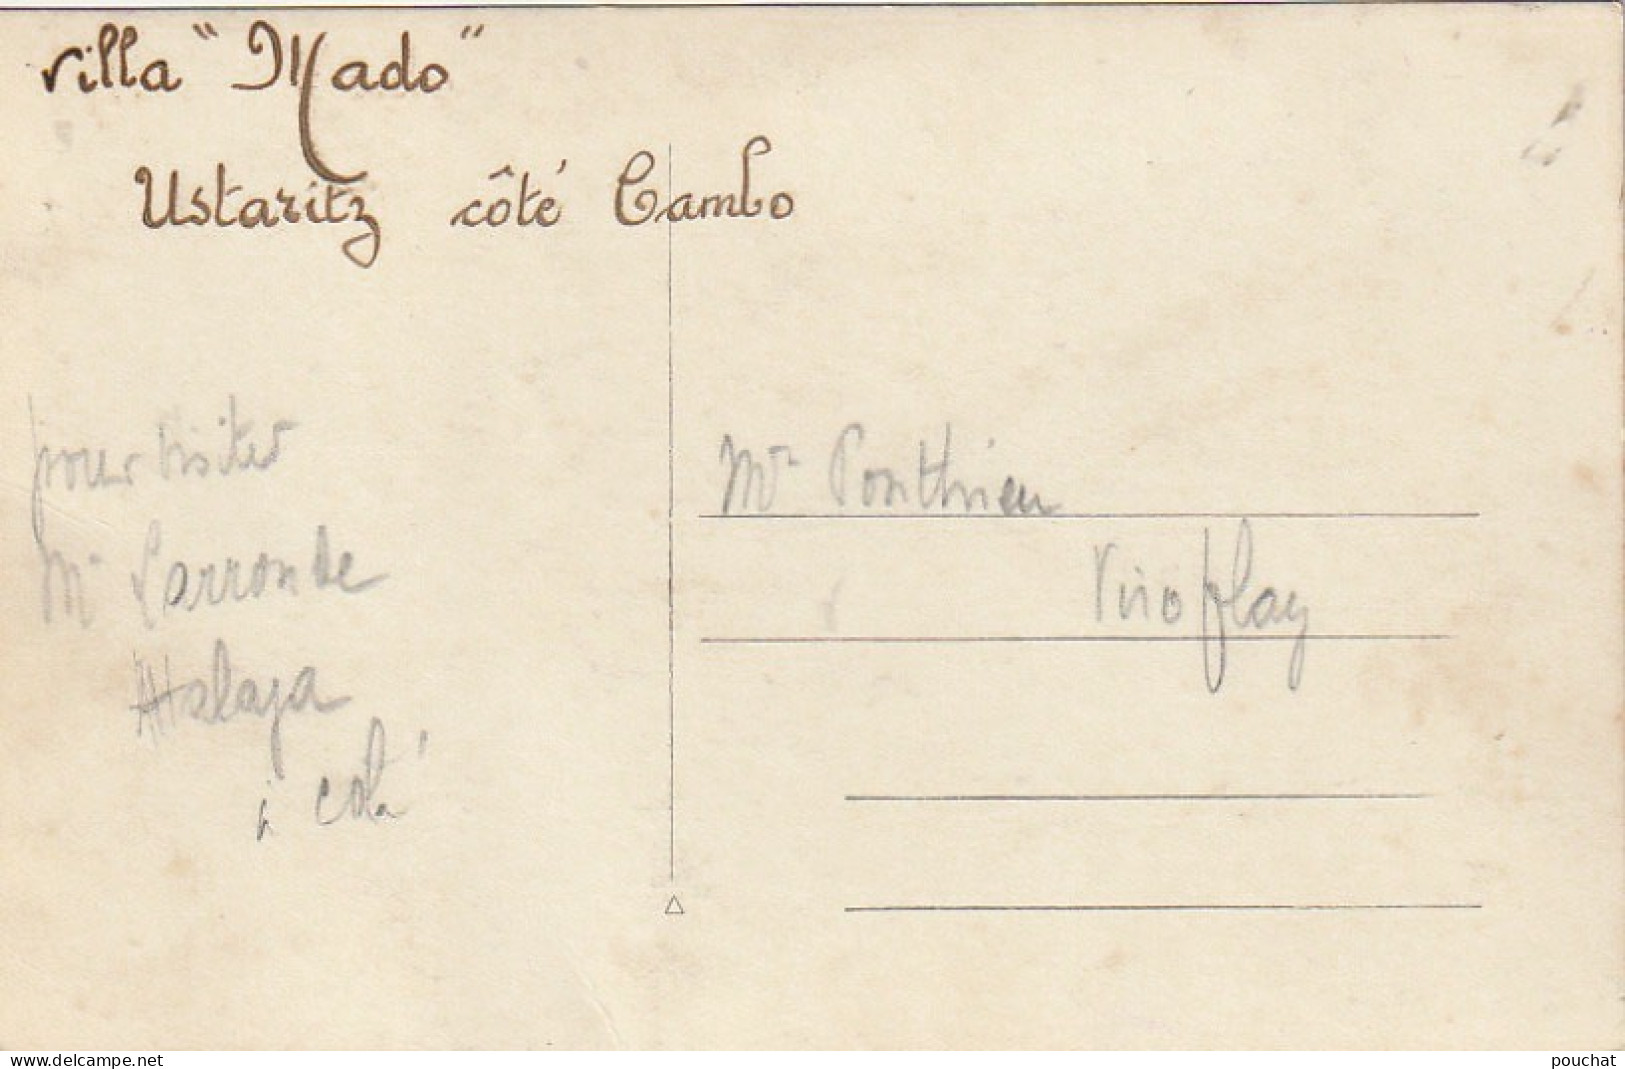 villa "Mado"
Ustaritz côté Cambo
pour visiter
Mr Larronde
Atalaya
à coté
Mr Ponthieu
Viroflay
www.delcampe.net
pouchat